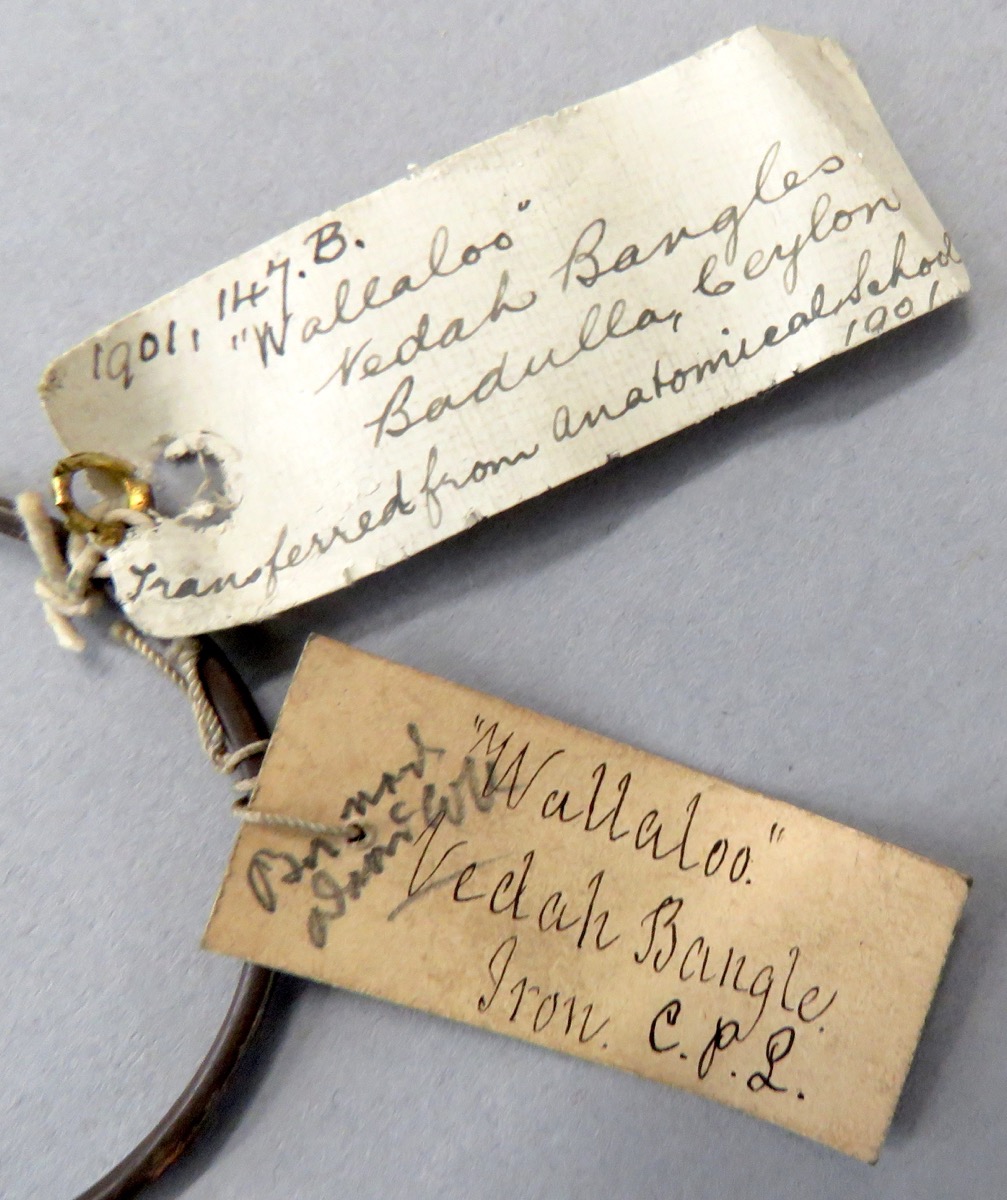 1901, 147. B.
"Wallaloo"
Vedah Bangles
Badulla, Ceylon
Transferred from Anatomical School
1901
"Wallaloo."
Vedah Bangle.
Iron. C. P. L.